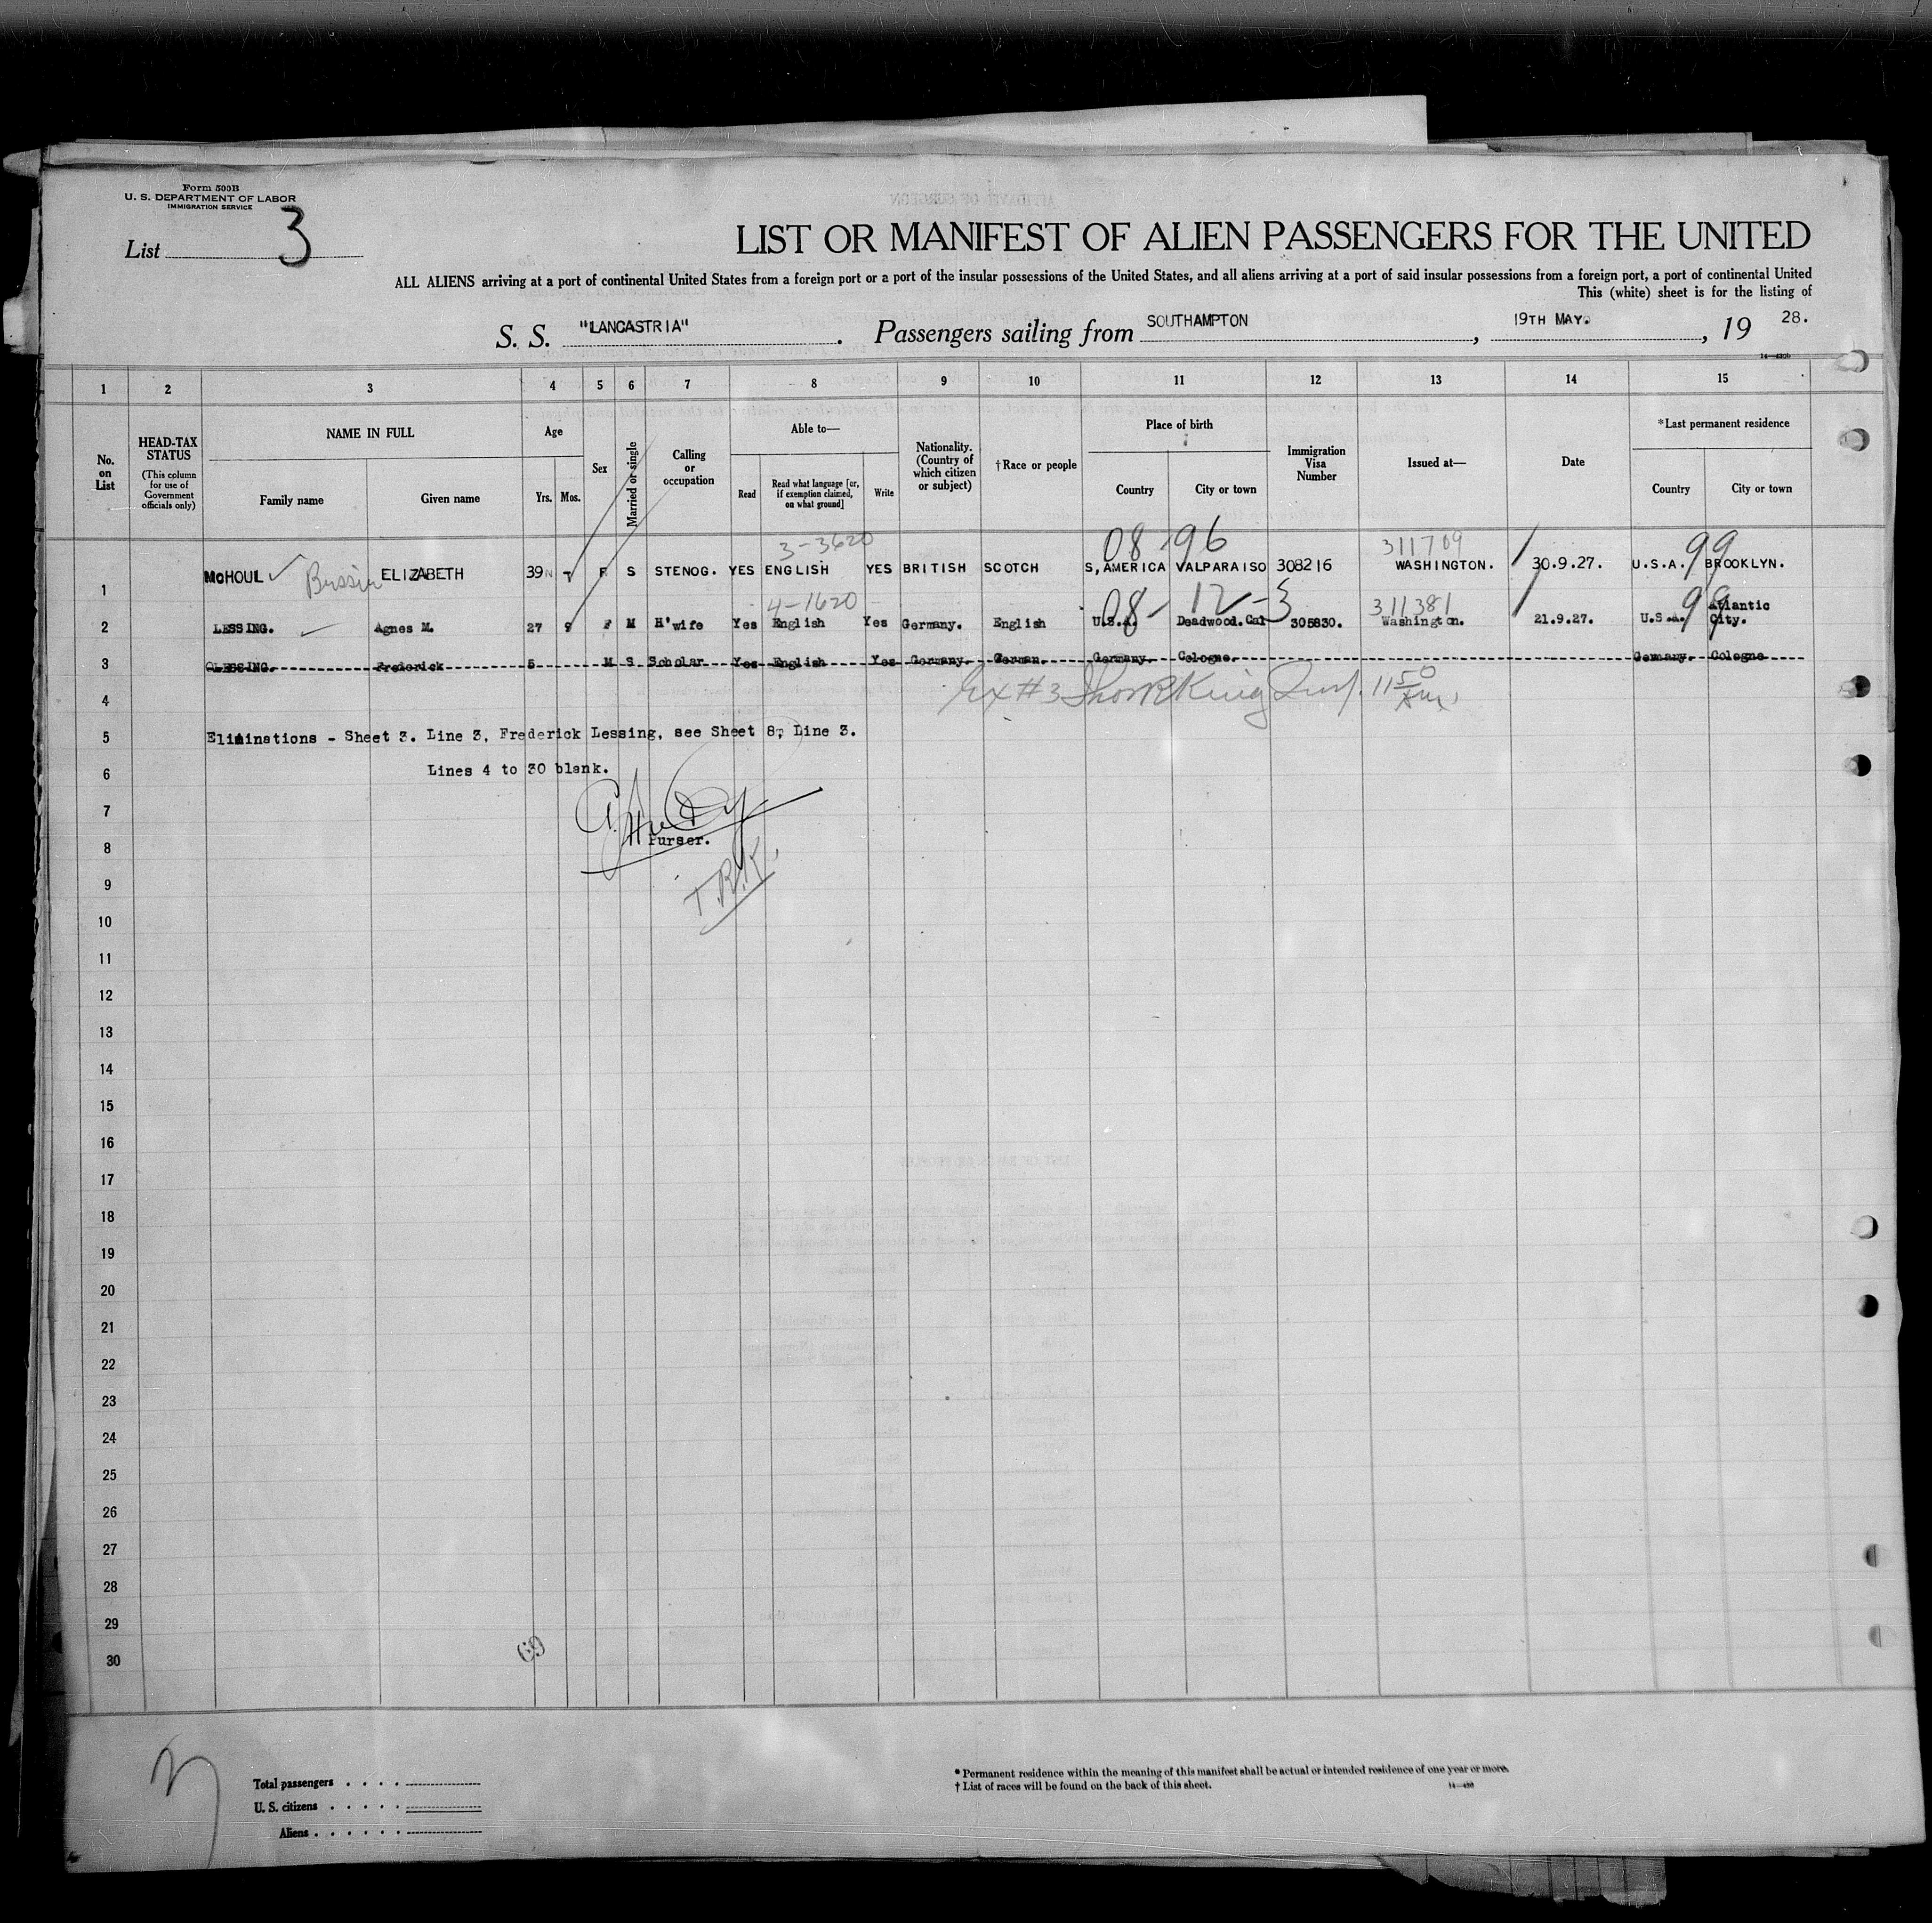 Form 500B
U. S. DEPARTMENT OF LABOR
IMMIGRATION SERVICE
List 3
LIST OR MANIFEST OF ALIEN PASSENGERS FOR THE UNITED
ALL ALIENS arriving at a port of continental United States from a foreign port or a port of the insular possessions of the United States, and all aliens arriving at a port of said insular possessions from a foreign port, a port of continental United
This (white) sheet is for the listing of
S. S. "LANCASTRIA". Passengers sailing from SOUTHAMPTON, 19TH MAY., 19 28.
1 2 3 4 5 6 7 8 9 10 11 12 13 14 15
No. on List
HEAD-TAX STATUS (This column for use of Government officials only)
NAME IN FULL
Family name Given name
Age
Yrs. Mos.
Sex
Married or single
Calling or occupation
Able to—
Read Read what language [or, if exemption claimed, on what ground] Write
Nationality. (Country of which citizen or subject)
†Race or people
Place of birth
Country City or town
Immigration Visa Number
Issued at—
Date
*Last permanent residence
Country City or town
3-3620 08-96 311709 99
1 McHOUL ELIZABETH 39 F S STENOG. YES ENGLISH YES BRITISH SCOTCH S,AMERICA VALPARAISO 308216 WASHINGTON. 30.9.27. U.S.A. BROOKLYN.
4-1620 08- 12-3 311381 99
2 LESSING. Agnes M. 27 9 F M H'wife Yes English Yes Germany. English U.S.A. Deadwood.Cal 305830. Washington. 21.9.27. U.S.A. Atlantic City.
3 LESSING. Frederick 5 M S Scholar Yes English Yes Germany. German. Germany. Cologne. Germany. Cologne
4 Ex #3 Thos R King Insp. 11 50 Am
5 Eliminations - Sheet 3. Line 3, Frederick Lessing, see Sheet 8, Line 3.
6 Lines 4 to 30 blank.
7
8 Purser.
9 T.R.K.
10
11
12
13
14
15
16
17
18
19
20
21
22
23
24
25
26
27
28
29
30
69
Total passengers
U. S. citizens
Aliens
* Permanent residence within the meaning of this manifest shall be actual or intended residence of one year or more.
† List of races will be found on the back of this sheet.